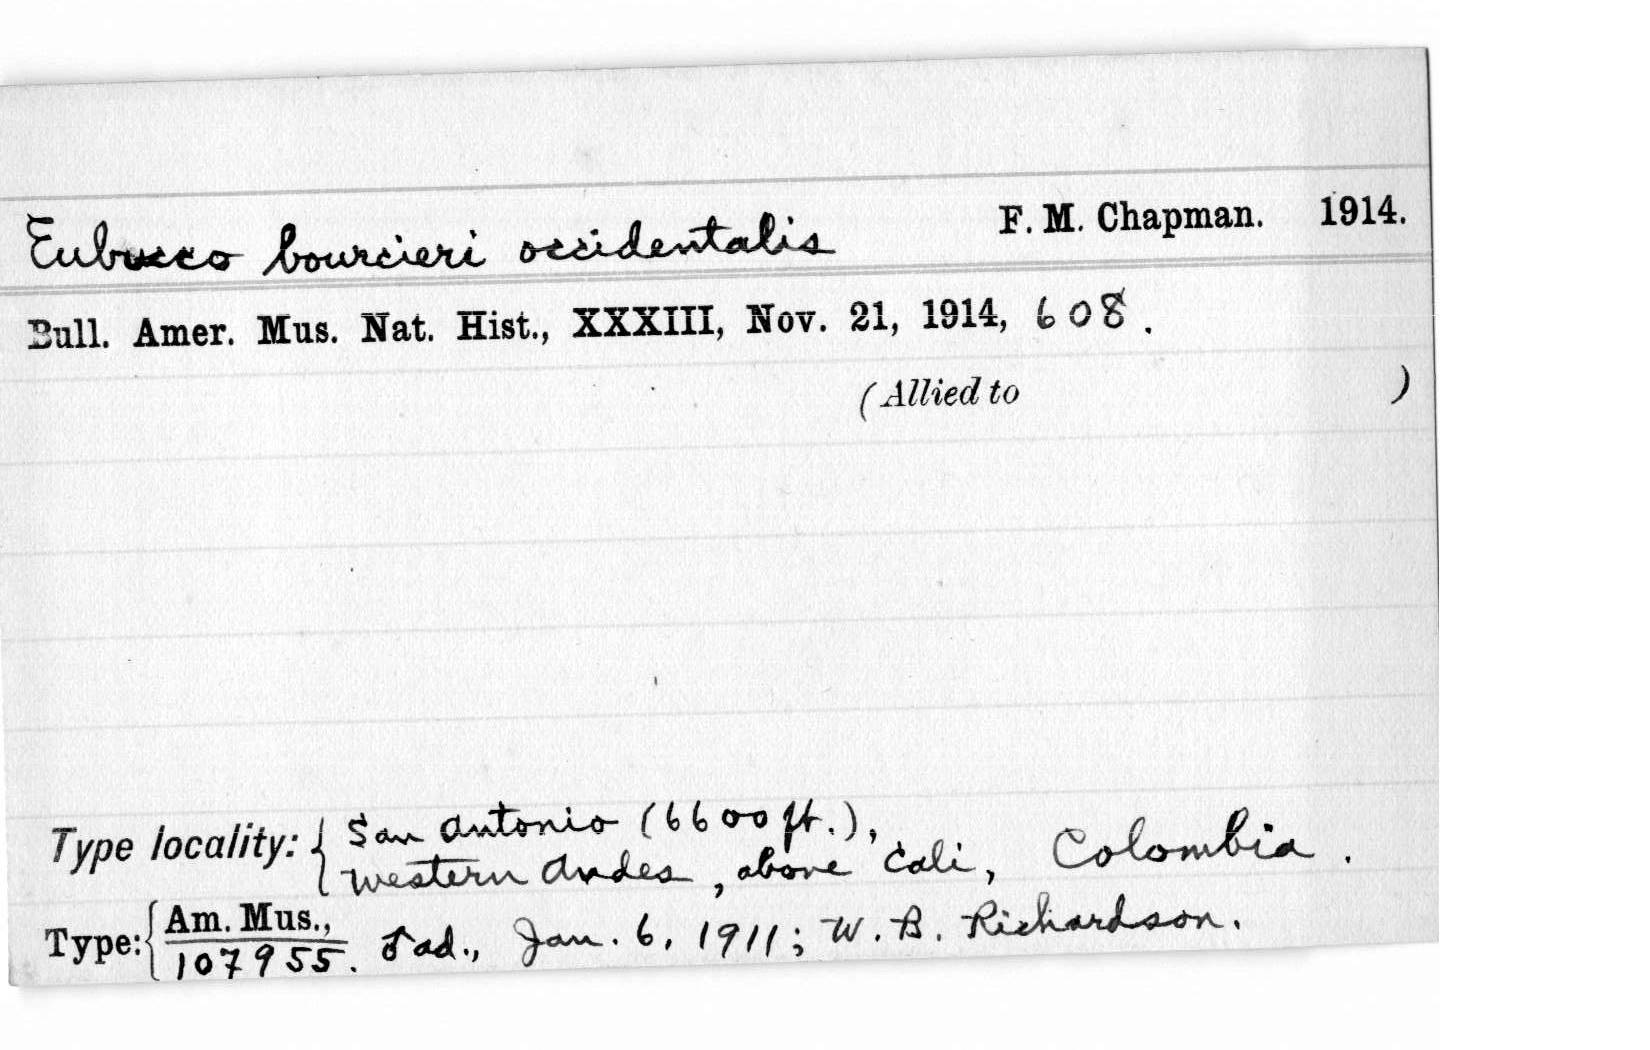 Eubucco bourcieri occidentalis F. M. Chapman. 1914.
Bull. Amer. Mus. Nat. Hist., XXXIII, Nov. 21, 1914, 608.
(Allied to )
Type locality: { San Antonio (6600 ft.),
Western Andes, above Cali, Colombia.
Type: { Am. Mus.,
107955. ♂ ad., Jan. 6, 1911; W. B. Richardson.